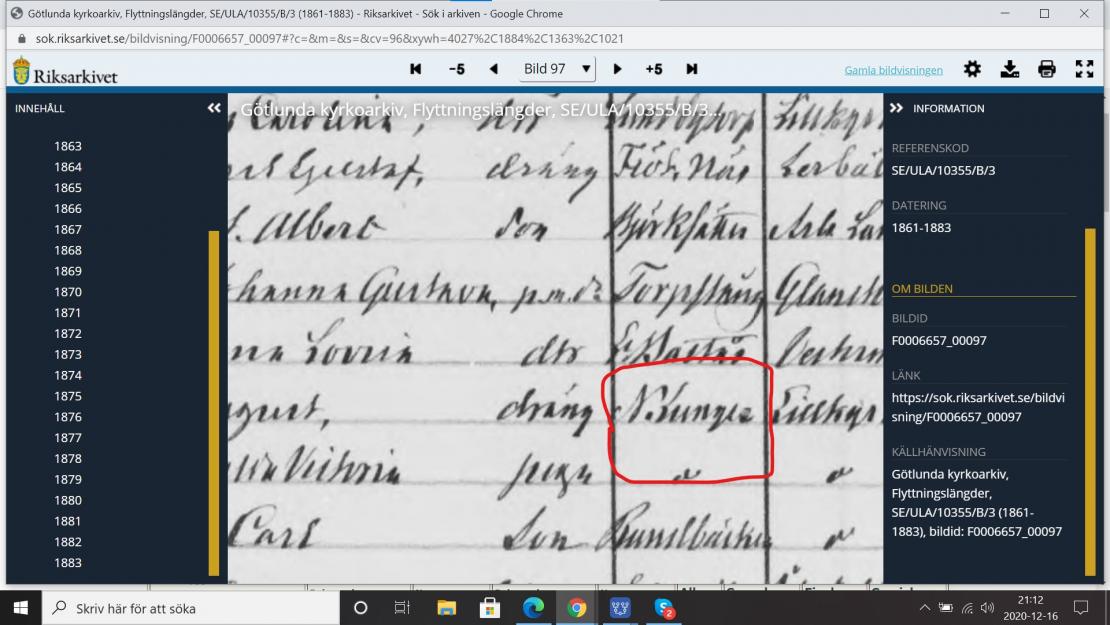 Götlunda kyrkoarkiv, Flyttningslängder, SE/ULA/10355/B/3 (1861-1883) - Riksarkivet - Sök i arkiven - Google Chrome
sok.riksarkivet.se/bildvisning/F0006657_00097#?c=&m=&s=&cv=96&xywh=4027%2C1884%2C1363%2C1021
Riksarkivet
-5
Bild 97
+5
Gamla bildvisningen
INNEHÅLL
1863
1864
1865
1866
1867
1868
1869
1870
1871
1872
1873
1874
1875
1876
1877
1878
1879
1880
1881
1882
1883
Götlunda kyrkoarkiv, Flyttningslängder, SE/ULA/10355/B/3...
Gustaf, dräng
Albert Son
Gustava, p.m.dr Glans
Lovisa dtr
gust, dräng
Victoria piga
Carl Son
INFORMATION
REFERENSKOD
SE/ULA/10355/B/3
DATERING
1861-1883
OM BILDEN
BILDID
F0006657_00097
LÄNK
https://sok.riksarkivet.se/bildvi
sning/F0006657_00097
KÄLLHÄNVISNING
Götlunda kyrkoarkiv,
Flyttningslängder,
SE/ULA/10355/B/3 (1861-
1883), bildid: F0006657_00097
Skriv här för att söka
2
21:12
2020-12-16